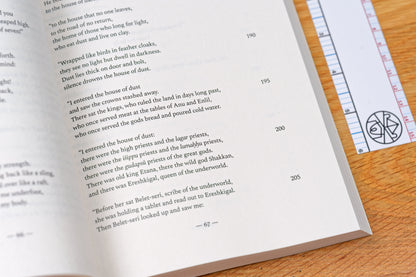 you
yal,
of seven!"
forth.
mind:
strength.
back like a sling,
ever like a raft,
defensive,
my body.
— 66 —
to the house of
"to the house that no one leaves,
to the road of no return,
the home of those who long for light,
who eat dust and live on clay.
190
"Wrapped like birds in feather cloaks,
they see no light but dwell in darkness.
Dust lies thick on door and bolt,
silence drowns the house of dust.
"I entered the house of dust
195
and saw the crowns stashed away.
There sat the kings, who ruled the land in days long past,
who once served meat at the tables of Anu and Enlil,
who once served the gods bread and poured cold water.
"I entered the house of dust:
200
there were the high priests and the lagar priests,
there were the išippu priests and the lumahhu priests,
there were the gudapsû priests of the great gods.
There was old king Etana, there the wild god Shakkan,
and there was Ereshkigal, queen of the underworld.
205
"Before her sat Belet-seri, scribe of the underworld,
she was holding a tablet and read out to Ereshkigal.
Then Belet-seri looked up and saw me:
— 67 —